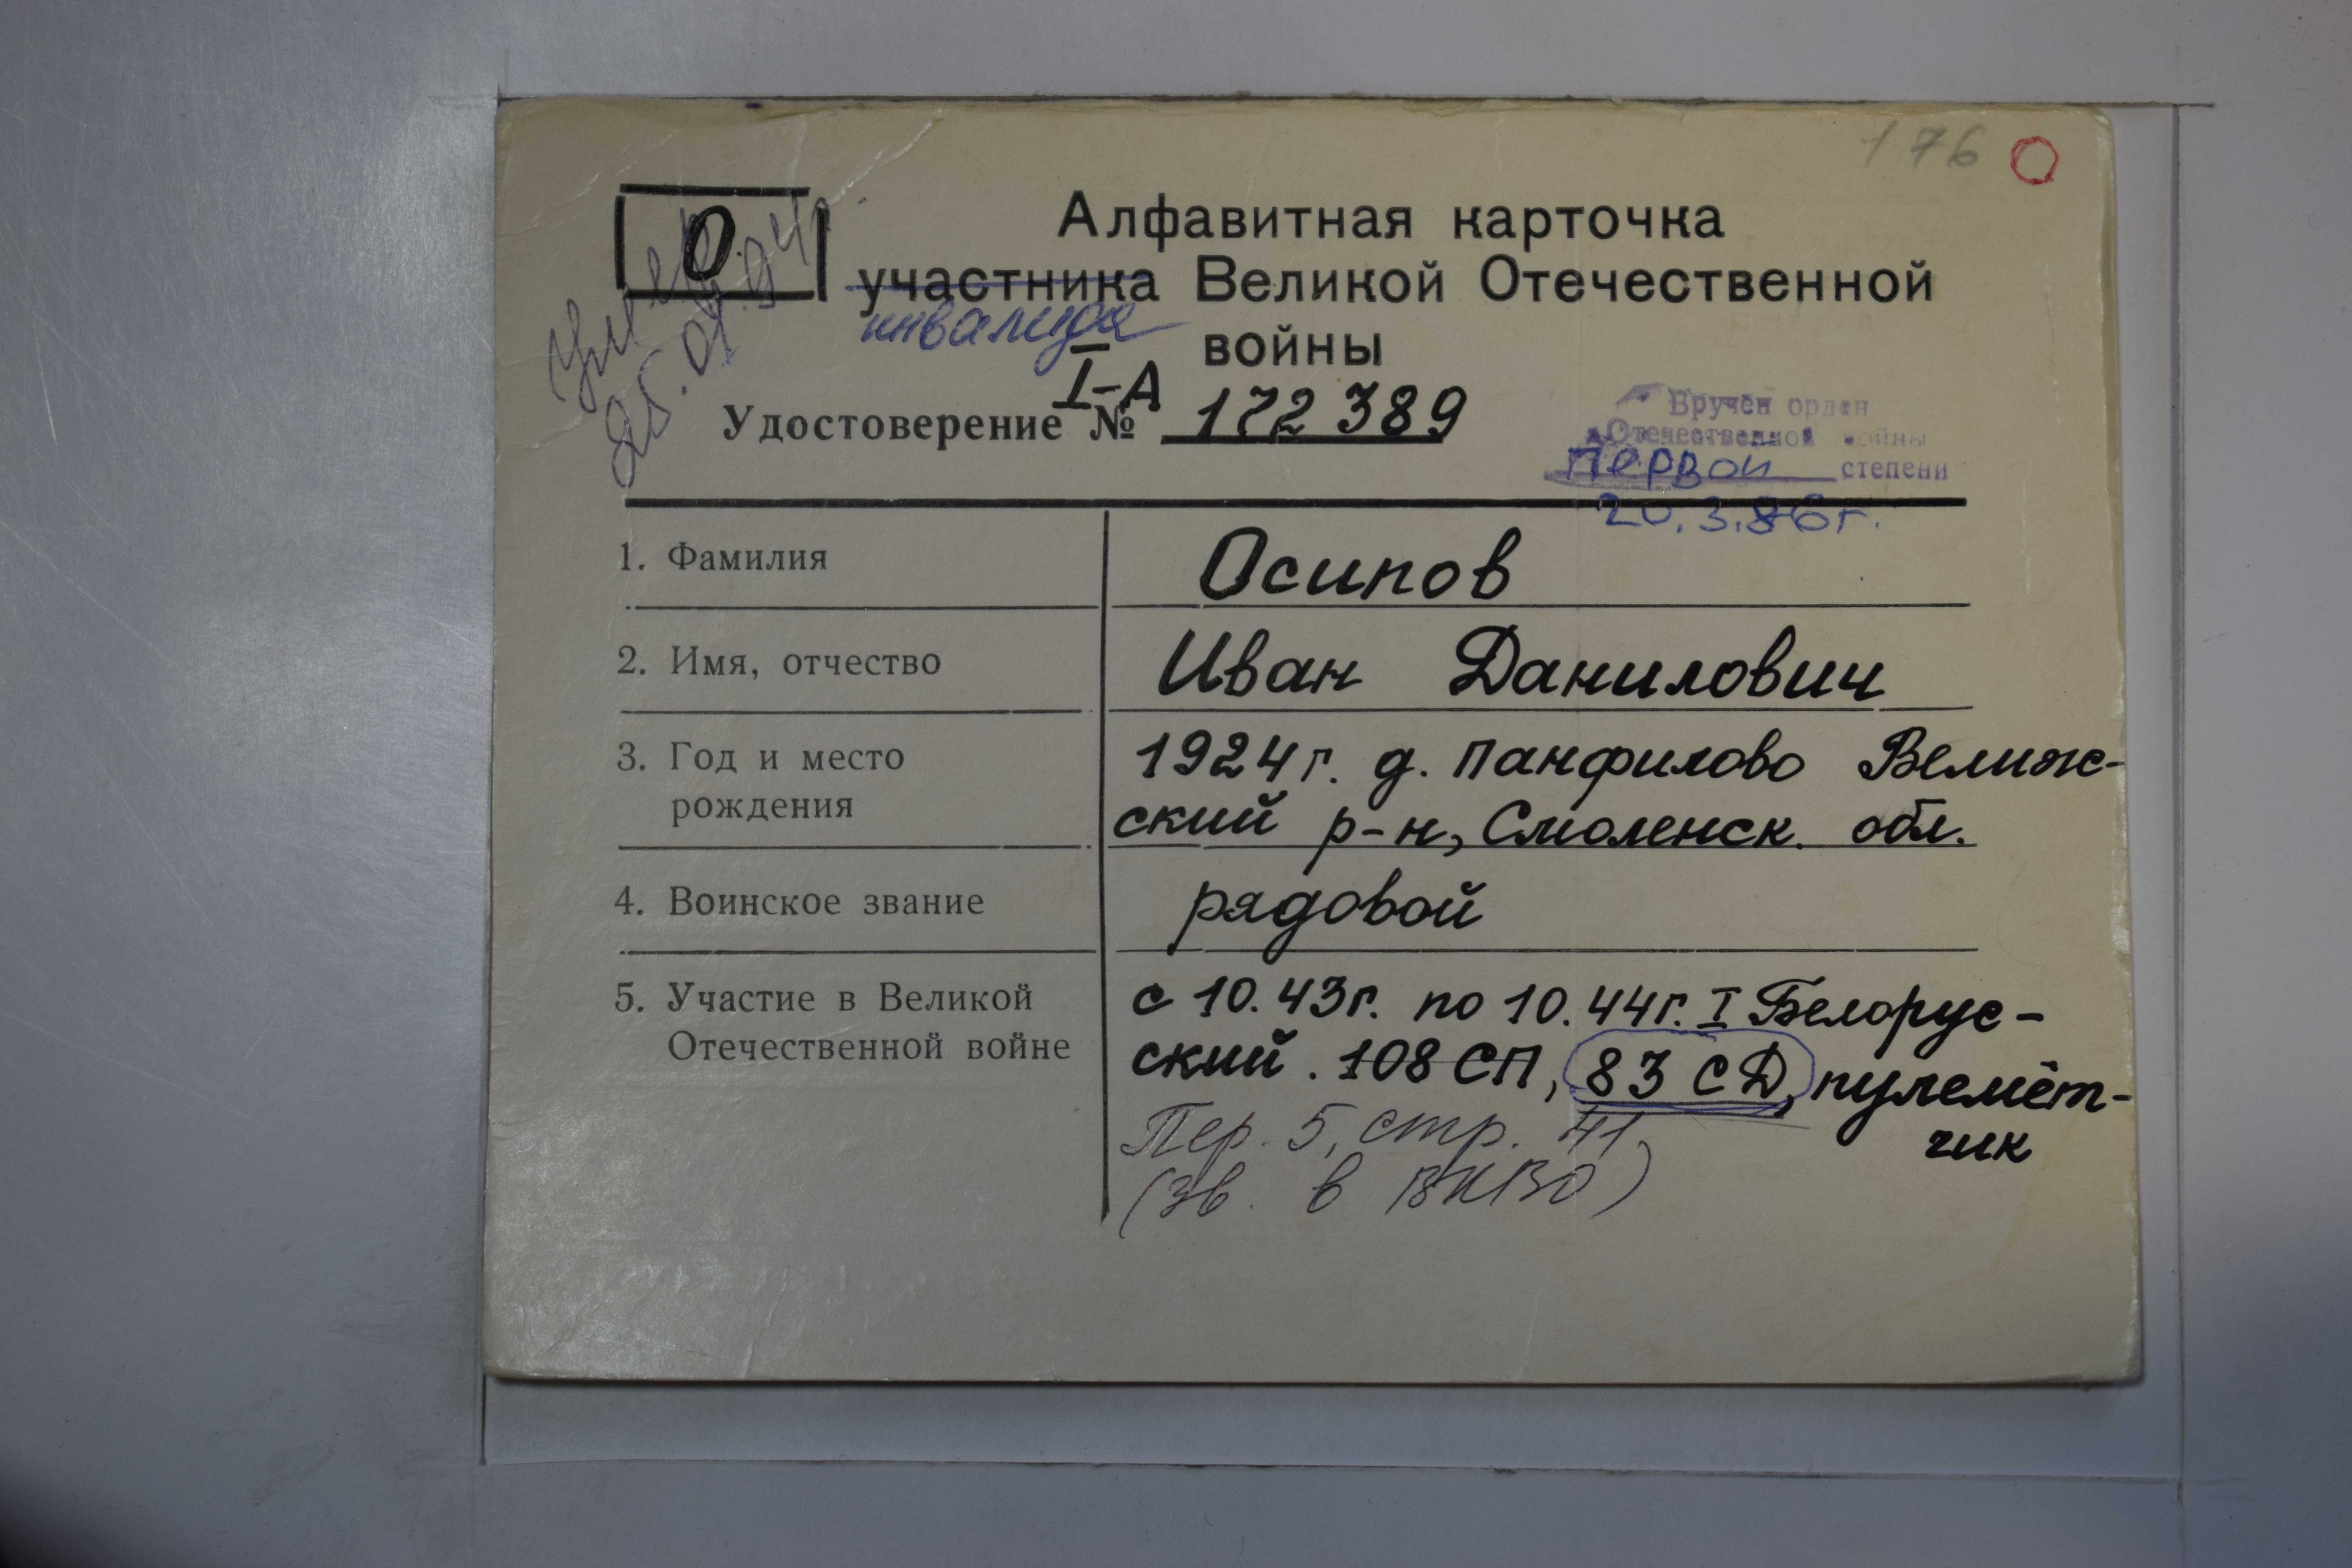 176
О
Алфавитная карточка
участника Великой Отечественной
инвалида
войны
умер
25.01.94г.
I-А
Удостоверение № 172389
Вручен орден
Отечественной войны
первой степени
20.3.86г.
1. Фамилия
Осипов
2. Имя, отчество
Иван Данилович
3. Год и место
рождения
1924г. д. Панфилово Велиж-
ский р-н, Смоленск. обл.
4. Воинское звание
рядовой
5. Участие в Великой
Отечественной войне
с 10.43г. по 10.44г. I Белорус-
ский. 108 СП, 83 СД, пулемёт-
чик
Пер. 5, стр. 41
(зв. в